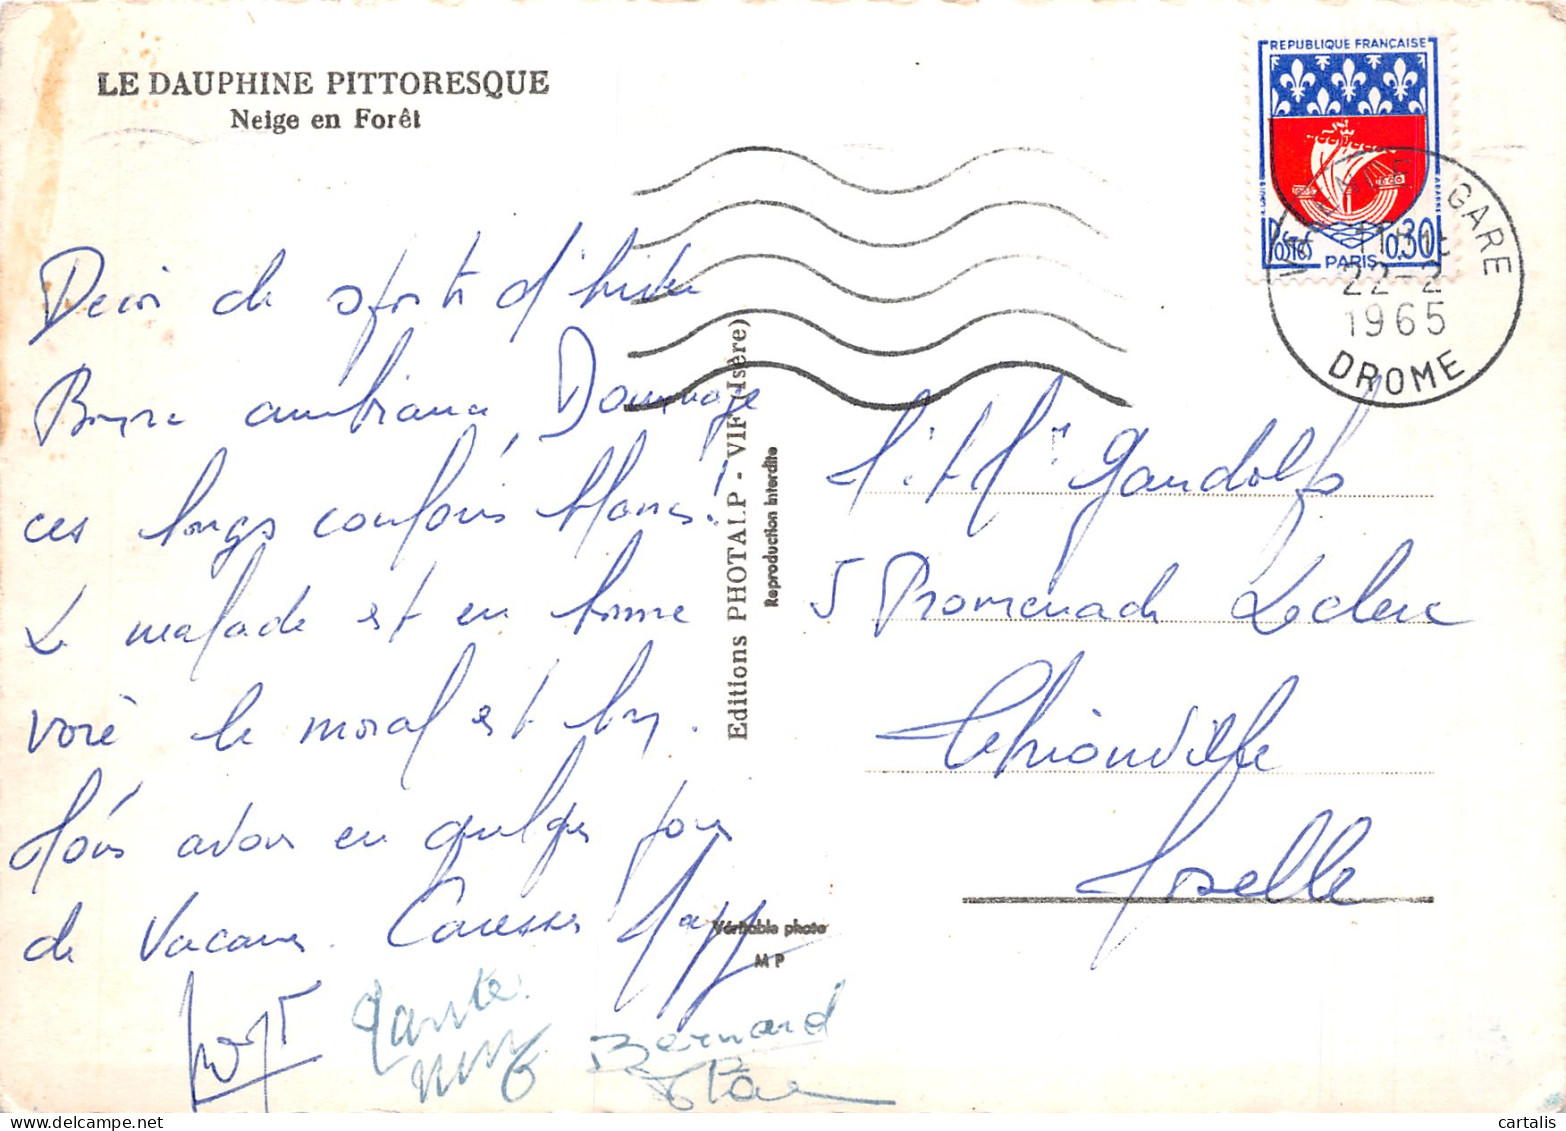 LE DAUPHINE PITTORESQUE
Neige en Forêt
REPUBLIQUE FRANÇAISE
Postes 0,30
PARIS
GARE
22-2
1965
DROME
de sports d'hiver
Bonne ambiance Dommage
ces longs convois blancs!
Le malade est en bonne
voie le moral est bon.
Nous avons eu quelques jours
de Vacances. Caresses
tante
Bernard
Editions PHOTALP - VIF (Isère)
Reproduction interdite
Véritable photo
MP
Gandolfo
5 Promenade Leclerc
Thionville
Moselle
cartalis